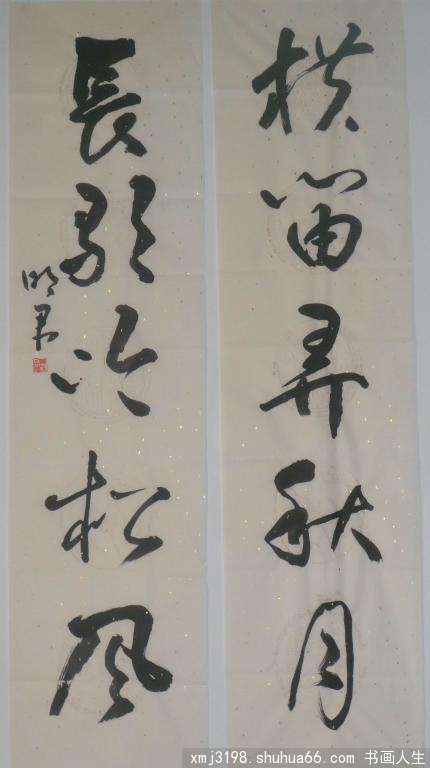 横笛弄秋月
長歌吟松风
明君
xmj3198.shuhua66.com 书画人生